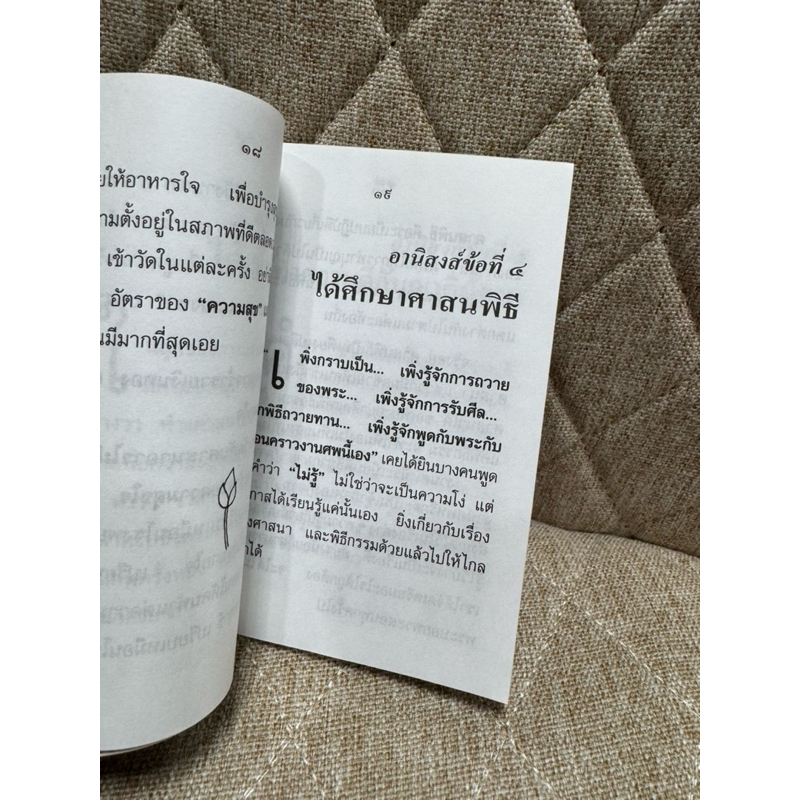 ๑๘
ยให้อาหารใจ เพื่อบำรุง
ามตั้งอยู่ในสภาพที่ดีตลอด
เข้าวัดในแต่ละครั้ง
อัตราของ “ความสุข”
นมีมากที่สุดเอย
๑๙
อานิสงส์ข้อที่ ๔
ได้ศึกษาศาสนพิธี
พิ่งกราบเป็น... เพิ่งรู้จักการถวาย
ของพระ... เพิ่งรู้จักการรับศีล...
กพิธีถวายทาน... เพิ่งรู้จักพูดกับพระกับ
อนคราวงานศพนี้เอง” เคยได้ยินบางคนพูด
คำว่า “ไม่รู้” ไม่ใช่ว่าจะเป็นความโง่ แต่
กาสได้เรียนรู้แค่นั้นเอง ยิ่งเกี่ยวกับเรื่อง
งศาสนา และพิธีกรรมด้วยแล้วไปให้ไกล
กได้